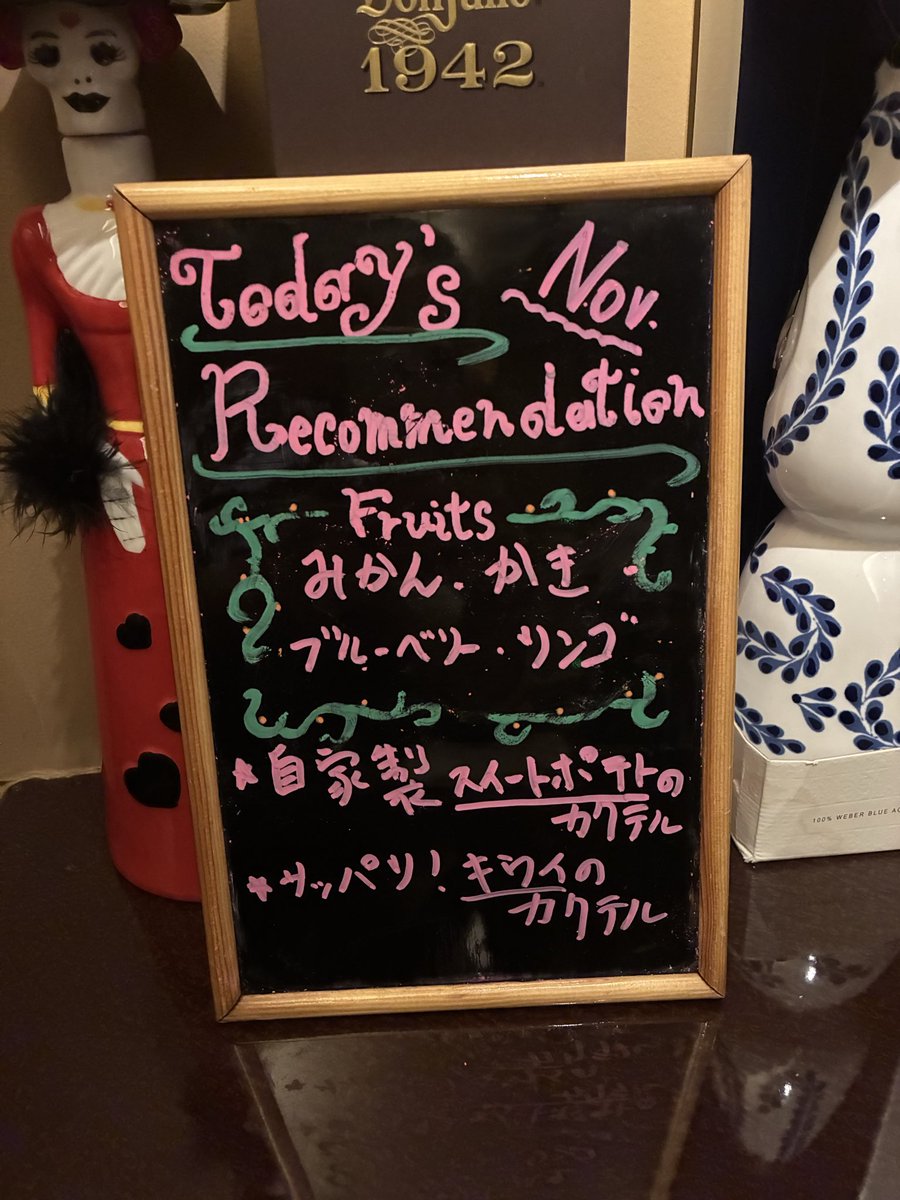 DonJulio
1942
Today's Nov.
Recommendation
Fruits
みかん・かき
ブルーベリー・リンゴ
*自家製 スイートポテトの
カクテル
*サッパリ! キウイの
カクテル